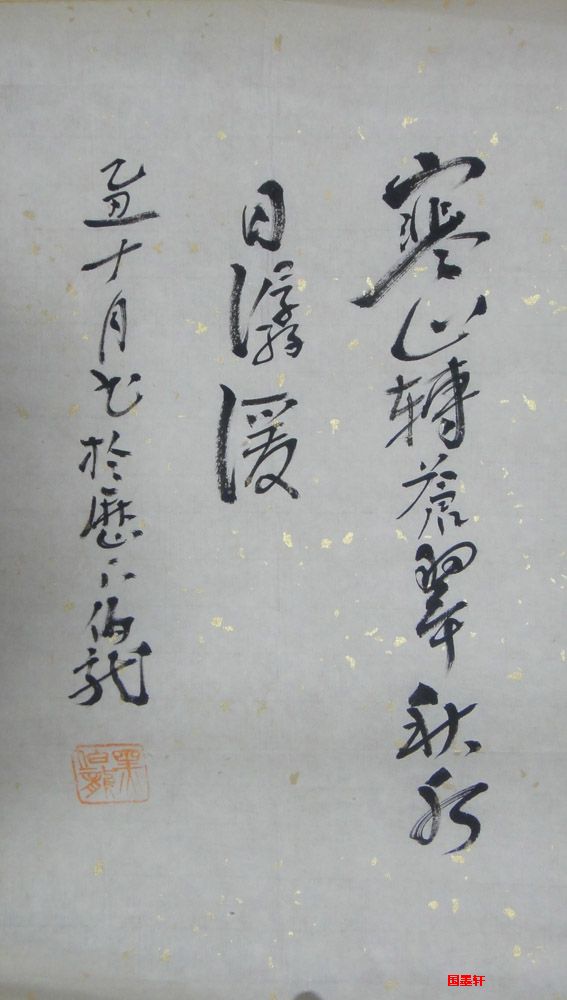 寒山轉蒼翠秋水
日潺湲
乙丑十月书於歷下伯龍
黑伯龍
国墨轩